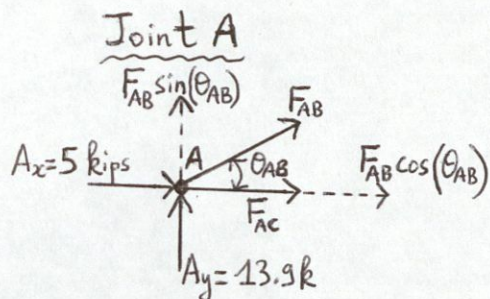 Joint A
F_AB sin(θ_AB)
F_AB
A_x=5 kips
A
θ_AB
F_AB cos(θ_AB)
F_AC
A_y=13.9k